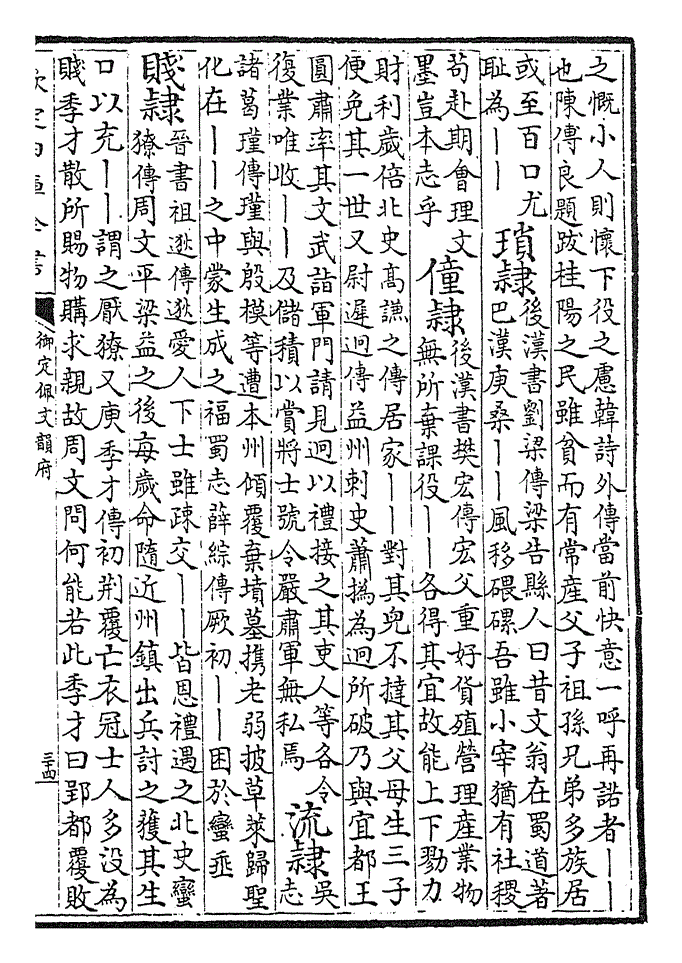 之慨小人則懷下役之慮韓詩外傳當前快意一呼再諾者丨丨
也陳傳良題跋桂陽之民雖貧而有常産父子祖孫兄弟多族居
或至百口尤
耻為丨丨
瑣隷
後漢書劉梁傳梁告縣人曰昔文翁在蜀道著
巴漢庚桑丨丨風移磈磥吾雖小宰猶有社稷
苟赴期會理文
墨豈本志乎
僮隷
後漢書樊宏傳宏父重好貨殖營理産業物
無所棄課役丨丨各得其宜故能上下勠力
財利歲倍北史髙謙之傳居家丨丨對其兒不撻其父母生三子
便免其一世又尉遲迥傳益州刺史蕭撝為迥所破乃與宜都王
圓肅率其文武詣軍門請見迥以禮接之其吏人等各令
復業唯收丨丨及儲積以賞將士號令嚴肅軍無私焉
流隷
吳
志
諸葛瑾傳瑾與殷模等遭本州傾覆棄墳墓携老弱披草萊歸聖
化在丨丨之中蒙生成之福蜀志薛綜傳厥初丨丨困於蠻垂
賤隷
晉書祖逖傳逖愛人下士雖疎交丨丨皆恩禮遇之北史蠻
獠傳周文平梁益之後每歲命隨近州鎮出兵討之獲其生
口以充丨丨謂之厭獠又庾季才傳初荆覆亡衣冠士人多没為
賤季才散所賜物購求親故周文問何能若此季才曰郢都覆敗
欽定四庫全書
御定佩文韻府
三十四